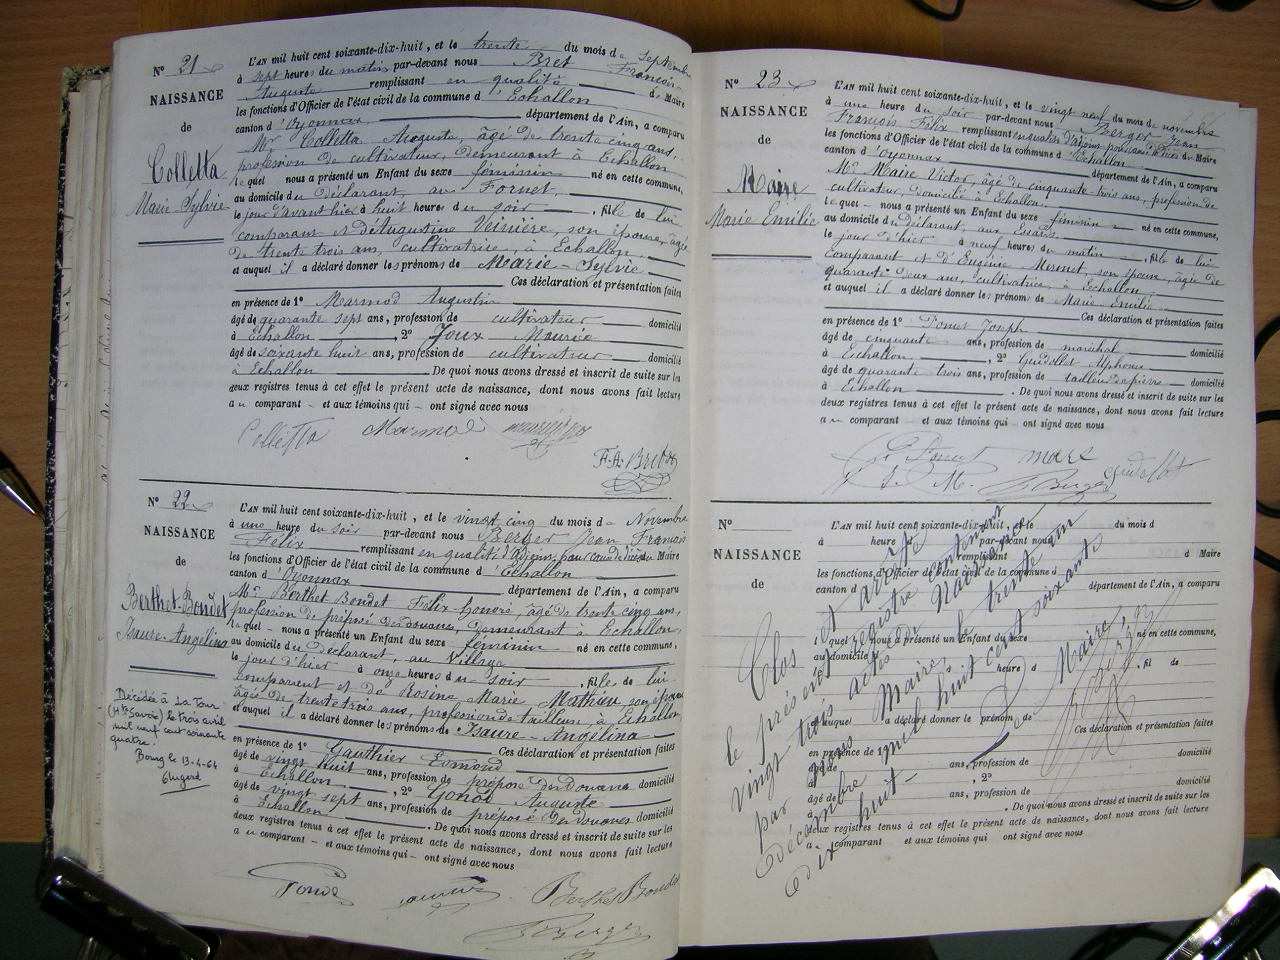 N° 21
NAISSANCE
de
Colletta
Marie-Sylvie
L'AN mil huit cent soixante-dix-huit, et le trente du mois de Septembre
à sept heures du matin par-devant nous Bret François-
Auguste remplissant en qualité de Maire
les fonctions d'Officier de l'état civil de la commune d'Echallon
canton d'Oyonnax département de l'Ain, a comparu
Mr Colletta Auguste, âgé de trente cinq ans,
profession de cultivateur, demeurant à Echallon
lequel nous a présenté un Enfant du sexe féminin né en cette commune,
au domicile du déclarant, au Fornet,
le jour d'avant hier à huit heures du soir, fille de lui
comparant et d'Augustine son épouse, âgée
de trente trois ans, cultivatrice, à Echallon
et auquel il a déclaré donner les prénoms de Marie-Sylvie
Ces déclaration et présentation faites
en présence de 1° Marmod Augustin
âgé de quarante sept ans, profession de cultivateur domicilié
à Echallon, 2° Joux Maurice
âgé de soixante huit ans, profession de cultivateur domicilié
à Echallon De quoi nous avons dressé et inscrit de suite sur les
deux registres tenus à cet effet le présent acte de naissance, dont nous avons fait lecture
au comparant et aux témoins qui ont signé avec nous
Colletta Marmod
F. A. Bret
N° 22
NAISSANCE
de
Berthet-Bondet
Isaure-Angelina
L'AN mil huit cent soixante-dix-huit, et le vingt cinq du mois de Novembre
à une heure du soir par-devant nous Berger Jean François
Félix remplissant en qualité d'adjoint, pour cause de Maire
les fonctions d'Officier de l'état civil de la commune d'Echallon
canton d'Oyonnax département de l'Ain, a comparu
Mr Berthet Bondet Félix-honoré, âgé de trente cinq ans,
profession de préposé des douanes, demeurant à Echallon,
lequel nous a présenté un Enfant du sexe féminin né en cette commune,
au domicile du déclarant, au Village
le jour d'hier à onze heures du soir, fille de lui
comparant et de Rosine Marie Mathieu son épouse
âgée de trente trois ans, profession de tailleuse à Echallon
et auquel il a déclaré donner les prénoms de Isaure-Angelina
Ces déclaration et présentation faites
en présence de 1° Gauthier Edmond
âgé de vingt huit ans, profession de préposé des douanes domicilié
à Echallon, 2° Auguste
âgé de vingt sept ans, profession de préposé des douanes domicilié
à Echallon De quoi nous avons dressé et inscrit de suite sur les
deux registres tenus à cet effet le présent acte de naissance, dont nous avons fait lecture
au comparant et aux témoins qui ont signé avec nous
Berthet Bondet
Berger
Décédée à La Tour
(Hte Savoie) le trois avril
mil neuf cent soixante
quatre.
Bourg le 13-4-64
N° 23
NAISSANCE
de
Maire
Marie Emilie
L'AN mil huit cent soixante-dix-huit, et le vingt neuf du mois de novembre
à une heure du soir par-devant nous Berger Jean
François Félix remplissant en qualité d'adjoint de Maire
les fonctions d'Officier de l'état civil de la commune d'Echallon
canton d'Oyonnax département de l'Ain, a comparu
Mr Maire Victor, âgé de cinquante-trois ans, profession de
cultivateur, domicilié à Echallon,
lequel nous a présenté un Enfant du sexe féminin né en cette commune,
au domicile du déclarant, aux Essarts
le jour d'hier à neuf heures du matin, fille de lui
Comparant et d'Eugénie Mermet, son épouse, âgée de
quarante-deux ans, cultivatrice, à Echallon
et auquel il a déclaré donner les prénoms de Marie Emilie
Ces déclaration et présentation faites
en présence de 1° Poncet Joseph
âgé de cinquante ans, profession de maréchal domicilié
à Echallon, 2° Guidollet Alphonse
âgé de quarante trois ans, profession de tailleur de pierre domicilié
à Echallon De quoi nous avons dressé et inscrit de suite sur les
deux registres tenus à cet effet le présent acte de naissance, dont nous avons fait lecture
au comparant et aux témoins qui ont signé avec nous
Poncet mars
J. M. Berger Guidollet
N°
NAISSANCE
de
L'AN mil huit cent soixante-dix-huit, et le du mois d
à heure par-devant nous
remplissant d Maire
les fonctions d'Officier de l'état civil de la commune d
canton d département de l'Ain, a comparu
l quel nous a présenté un Enfant du sexe né en cette commune,
au domicile d
le jour heure d, fil de
et auquel a déclaré donner le prénom de
Ces déclaration et présentation faites
en présence de 1°
âgé de ans, profession de domicilié
à, 2°
âgé de ans, profession de domicilié
à. De quoi nous avons dressé et inscrit de suite sur les
deux registres tenus à cet effet le présent acte de naissance, dont nous avons fait lecture
a comparant et aux témoins qui ont signé avec nous
Clos et arrêté
le présent registre contenant
vingt trois actes de Naissance
par Nous Maire, le trente un
décembre mil huit cent soixante
dix huit
Le Maire,